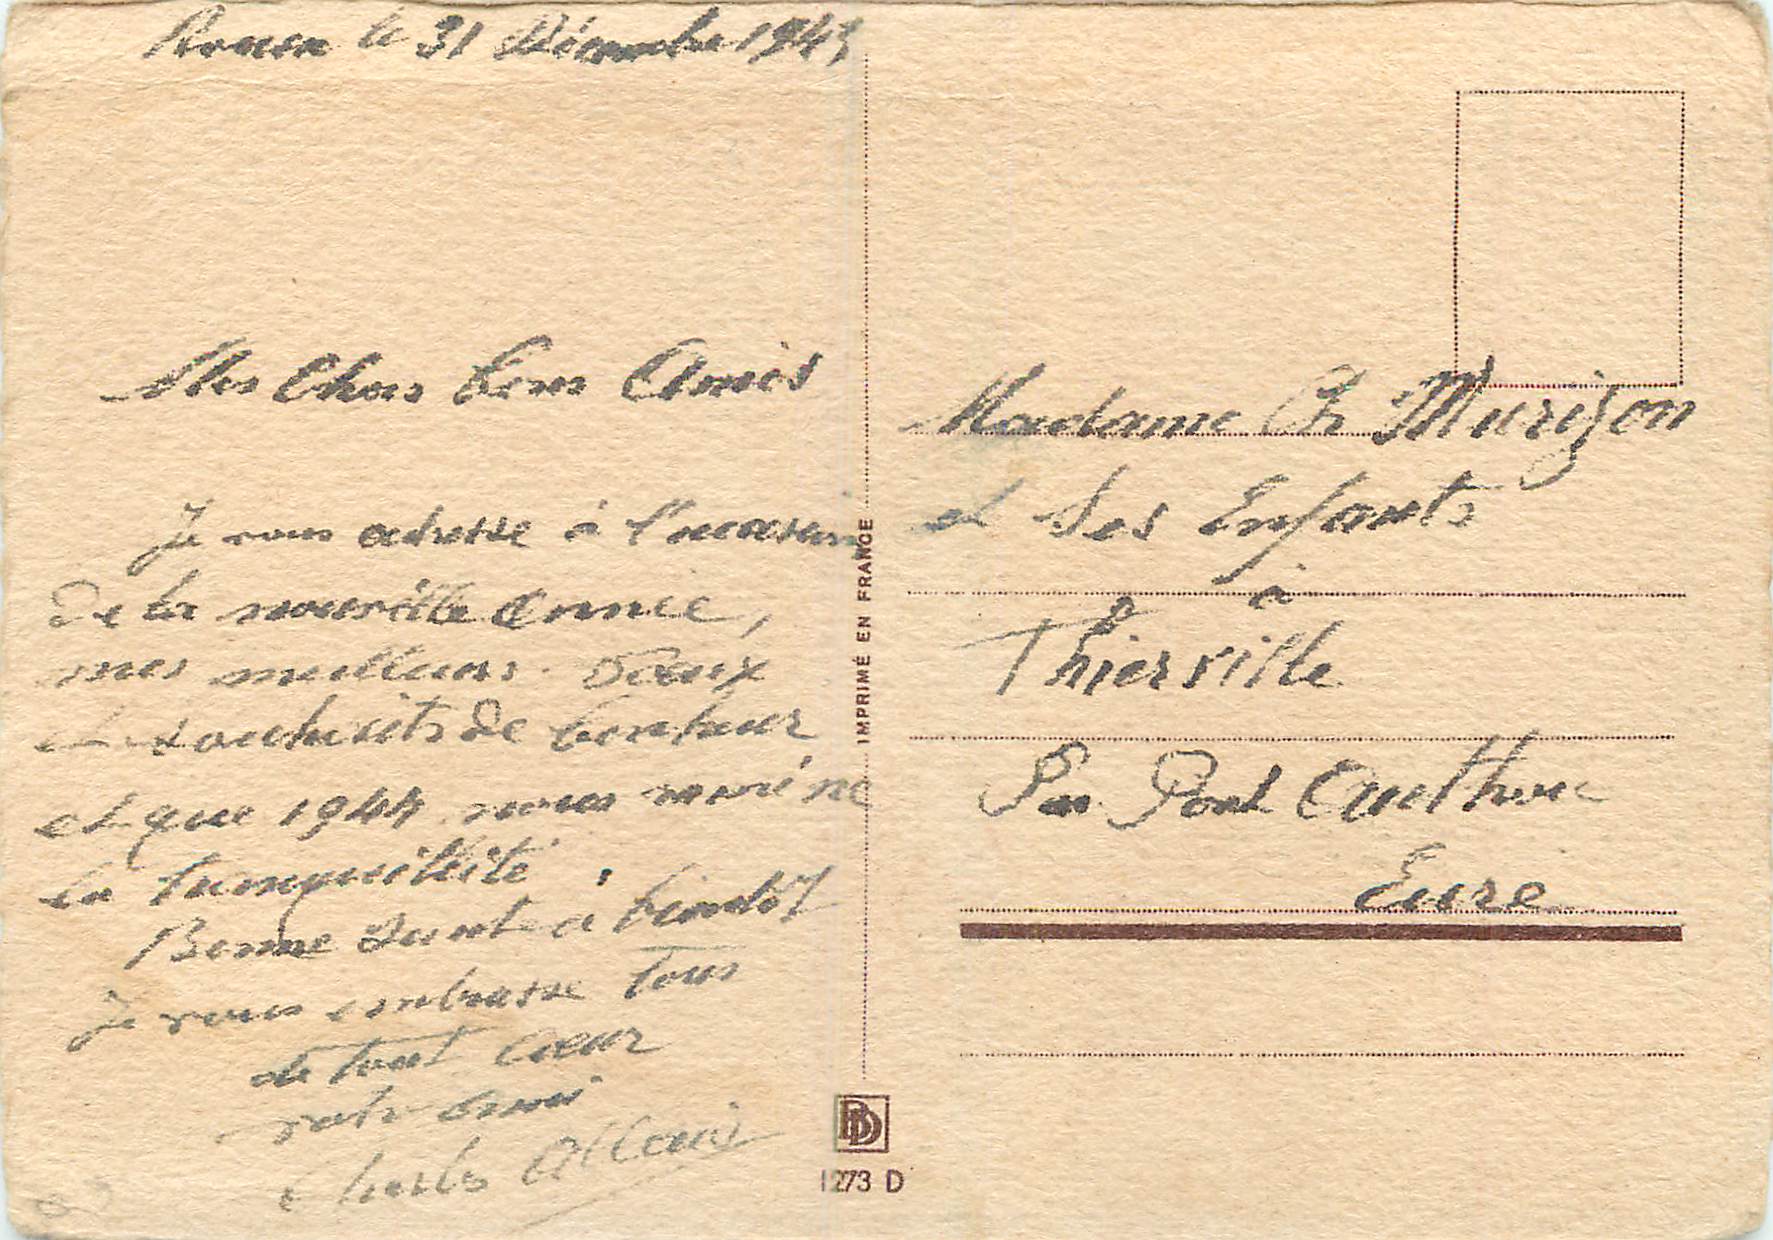 Rouen le 31 Décembre 1943
Mes Chers bons Amis
Je vous adresse à l'occasion
de la nouvelle Année,
mes meilleurs vœux
et souhaits de bonheur
et que 1944 nous ramène
la tranquillité.
Bonne Santé à bientôt
Je vous embrasse Tous
de tout cœur
votre ami
Charles Allais
Madame Ch Murizon
et Ses Enfants
à
Thierville
Par Pont Authou
Eure
IMPRIMÉ EN FRANCE
1273 D